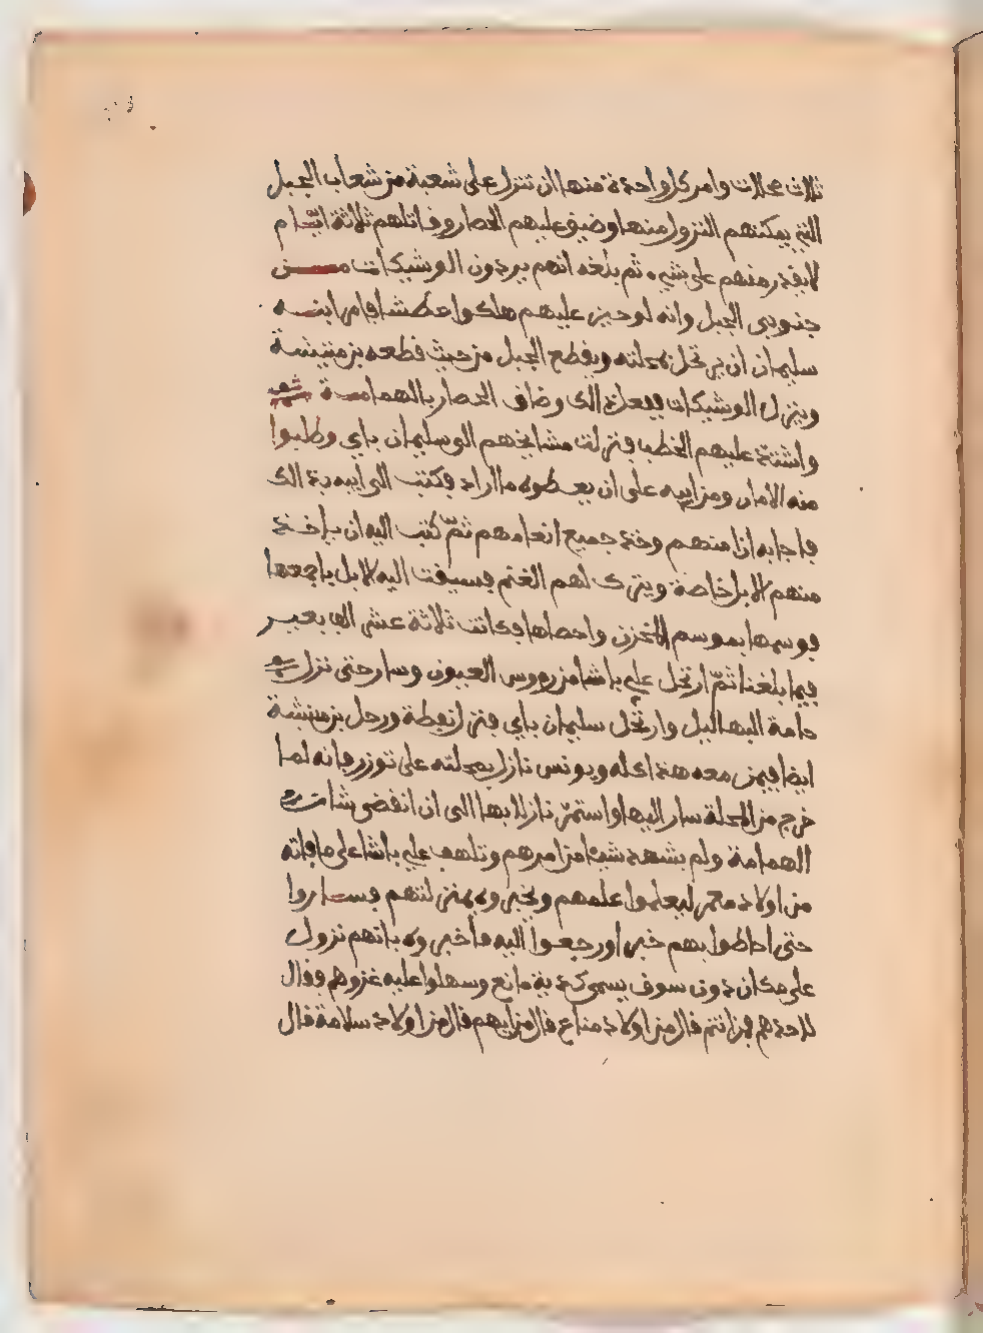 ثلاث محلات وامر كل واحدة منها ان تنزل على شعبة من شعاب الجبل
التي يمكنهم النزول منها وضيق عليهم الحصار وقاتلهم ثلاثة ايام
لا يقدر منهم على شيء ثم بلغه انهم يردون الوشيكات من
جنوبي الجبل وانه لو حيز عليهم هلكوا عطشا فامر ابنه
سليمان ان يرتحل بمحلته ويقطع الجبل من حيث قطعه بزمنيشة
وينزل الوشيكات ففعل ذالك وضاق الحصار بالهمامة
واشتد عليهم الخطب فنزلت مشايخهم الى سليمان باي وطلبوا
منه الامان ومن ابيه على ان يعطوه ما اراد فكتب الى ابيه بذالك
فاجابه اذا منهم وخذ جميع انعامهم ثم كتب اليه ان ياخذ
منهم الابل خاصة ويترك لهم الغنم فسيقت اليه الابل باجمعها
فوسمها بموسم المخزن واحصاها فكانت ثلاثة عشر الف بعير
فيما بلغنا ثم ارتحل علي باشا من رووس العيون وسار حتى نزل
حامة البهاليل وارتحل سليمان باي فنزل نفطة ورحل بزمنيشة
ايضا فيمن معه هذا كله ويونس نازل بمحلته على توزر فانه لما
خرج من المحلة سار اليها واستمر نازلا بها الى ان انقضى شان
الهمامة ولم يشهد شيئا من امرهم وتلهف علي باشا على ما فاته
من اولاد معمر ليعلموا علمهم ويخبروه بمنزلتهم فساروا
حتى احاطوا بهم خبرا ورجعوا اليه فاخبروه بانهم نزول
على مكان دون سوف يسمى كدية مانع وسهلوا عليه غزوهم وقال
لاحدهم فمن انتم قال من اولاد مناع قال من ايهم قال من اولاد سلامة قال